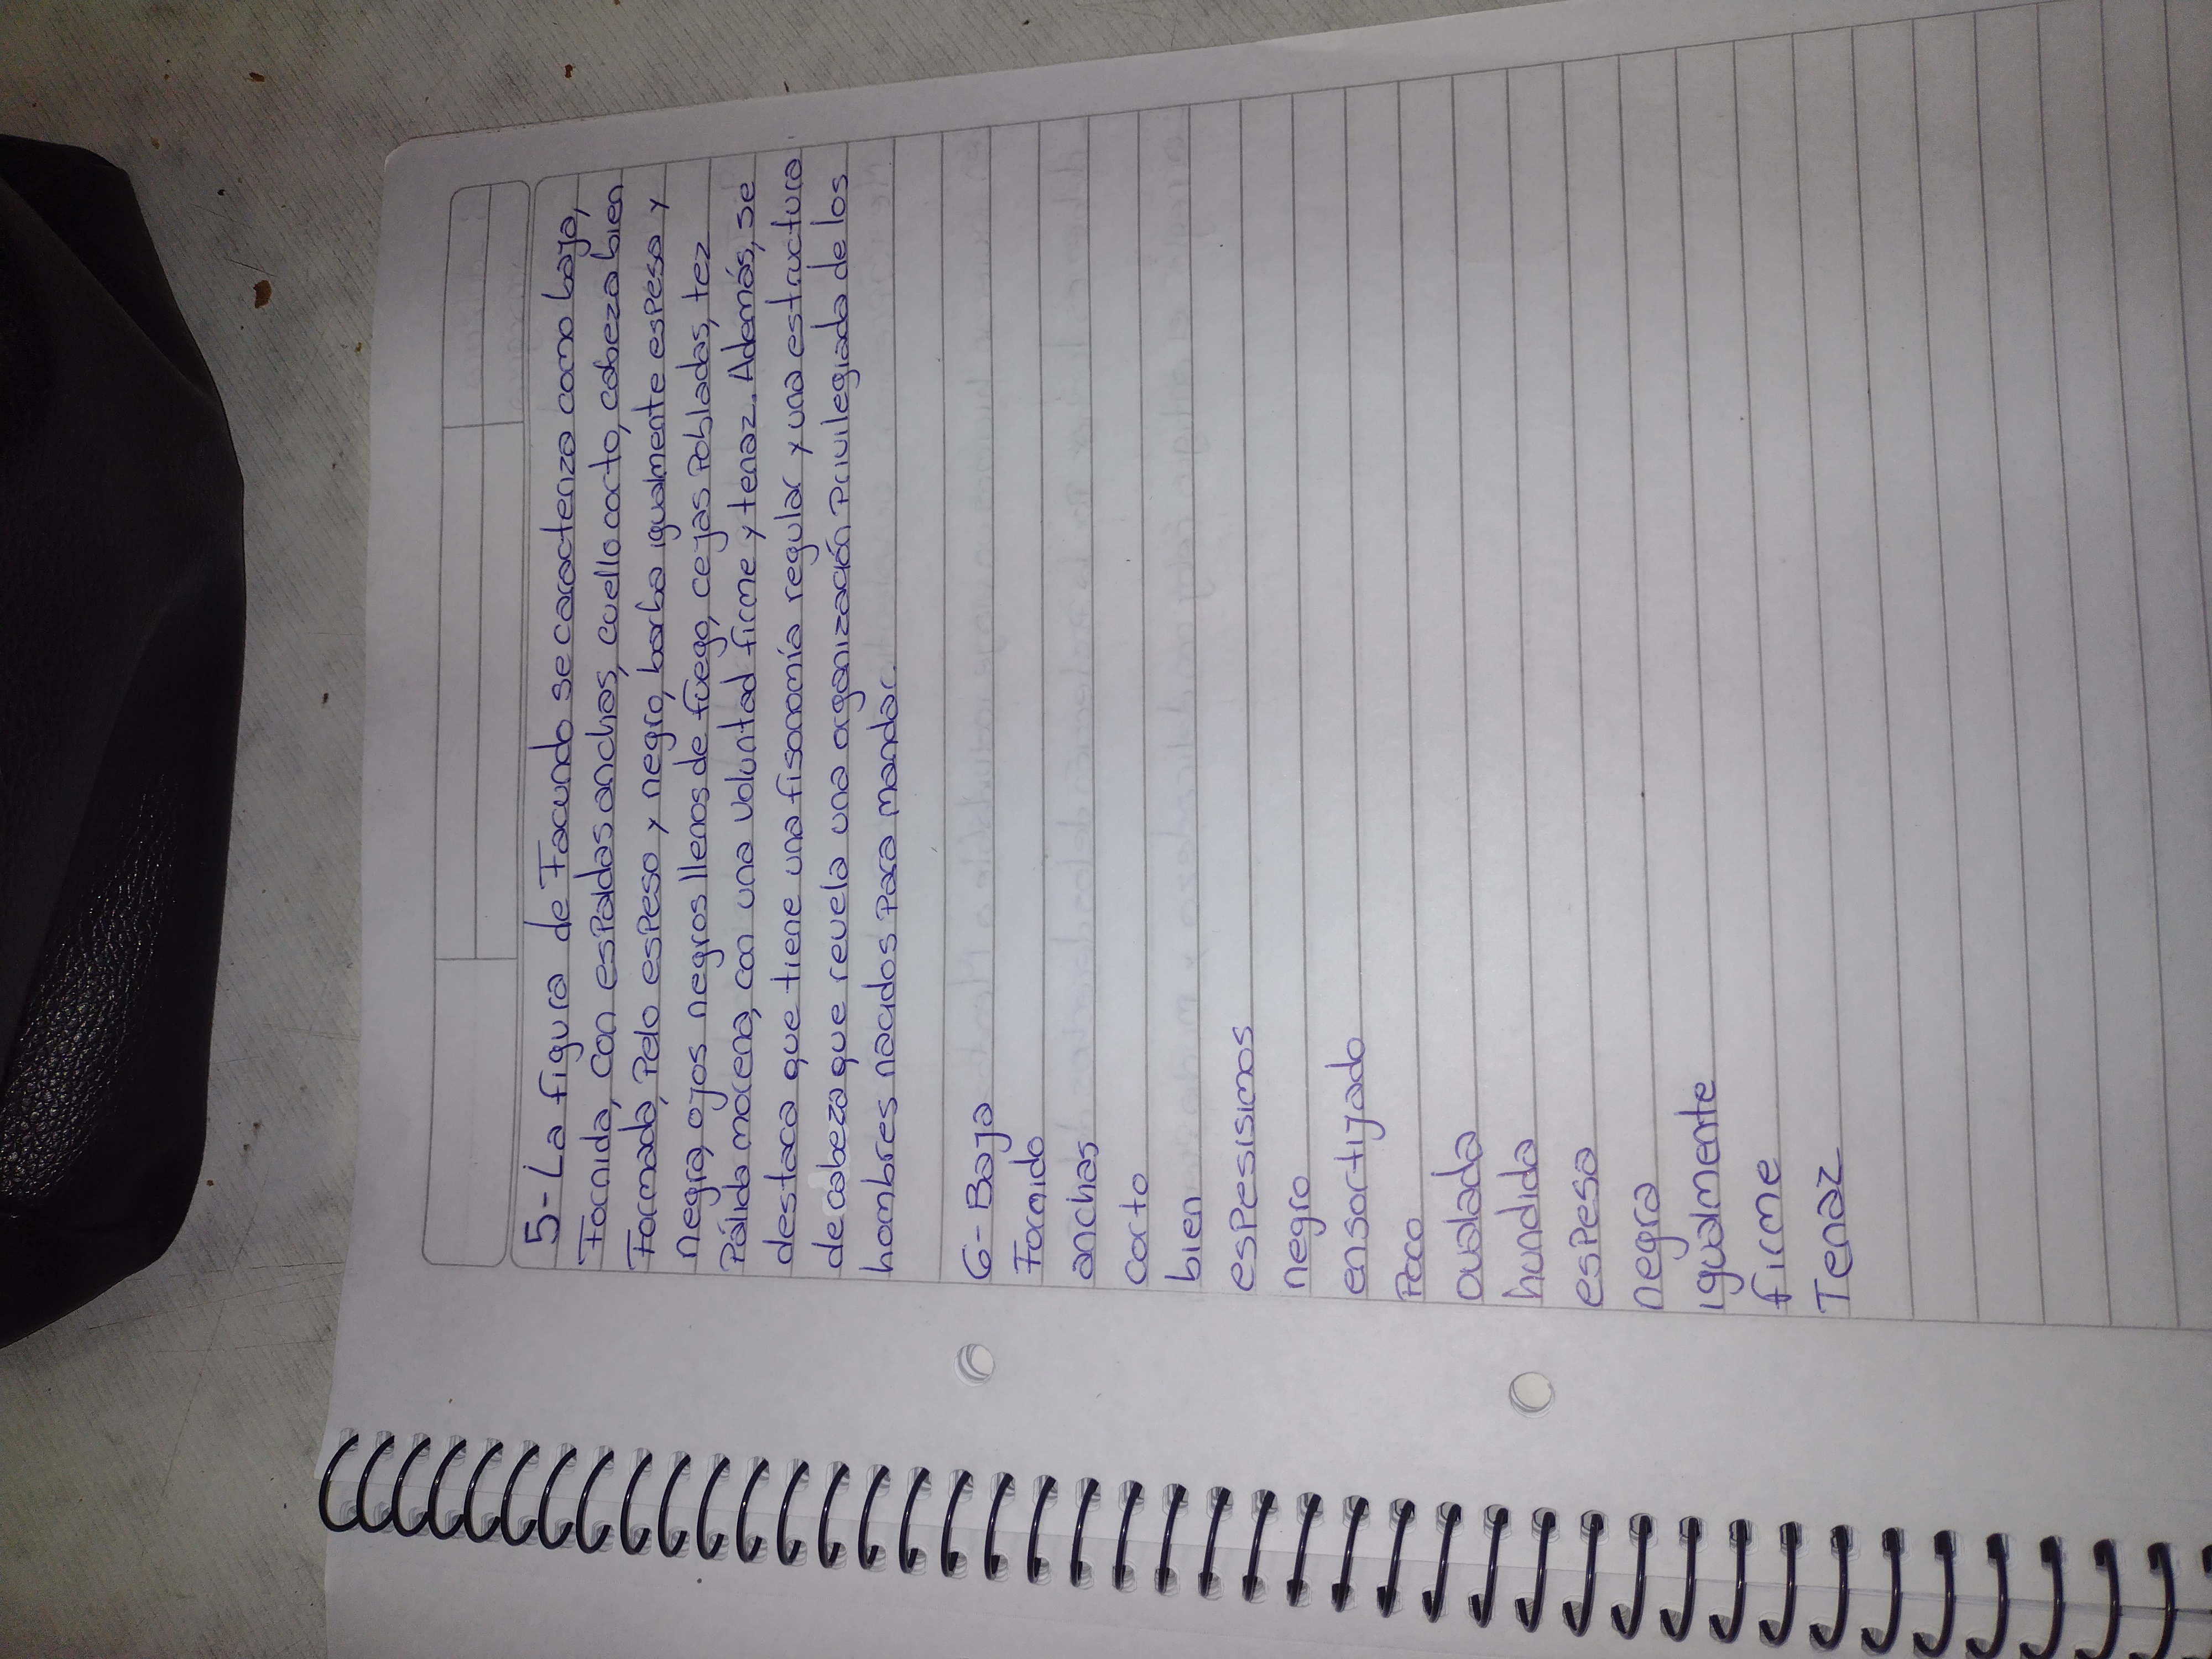 5-La figura de Facundo se caracteriza como baja,
Fornida, con esPaldas anchas, cuello corto, cabeza bien
Formada, Pelo esPeso y negro, barba igualmente esPesa y
negra, ojos negros llenos de fuego, cejas Pobladas, tez
Pálida morena, con una voluntad firme y tenaz. Además, se
destaca que tiene una fisonomía regular y una estructura
de cabeza que revela una organización Privilegiada de los
hombres nacidos Para mandar.
6-Baja
Fornido
anchas
corto
bien
esPesisimos
negro
ensortijado
Poco
ovalada
hundida
esPesa
negra
igualmente
firme
Tenaz